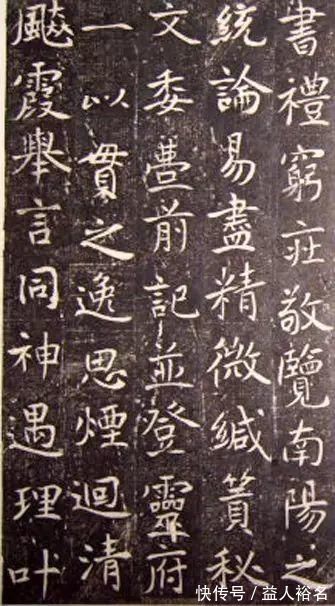 書禮窮庄敬覽南陽之
統論易盡精微緘簀秘
文委前記並登靈府
一以貫之逸思煙迴清
飈霞舉言同神遇理叶
快传号/益人裕名